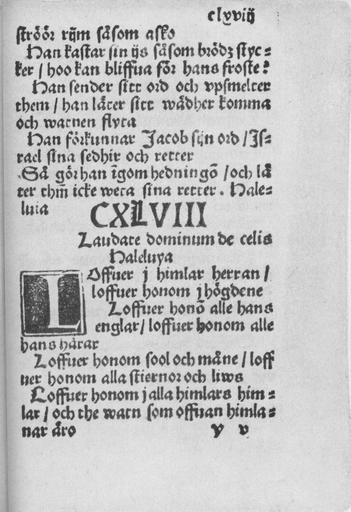 clxviij
ströör rijm såsom asko
Han kastar sin ijs såsom brödz styc-
ker / hoo kan bliffua för hans froste?
Han sender sitt ord och vpsmelter
them / han låter sitt wådher komma
och watnen flyta
Han förkunnar Jacob sijn ord / Is-
rael sina sedhir och retter
Så gör han ĩgom hedningõ / och lå
ter thm̃ icke weta sina retter. Hale-
luia
CXLVIII
Laudate dominum de celis
Haleluya
LOffuer j himlar herran /
loffuer honom j högdene
Loffuer honõ alle hans
englar / loffuer honom alle
hans härar
Loffuer honom sool och måne / loff
uer honom alla stiernor och liws
Loffuer honom j alla himlars him-
lar / och the watn som offuan himla-
nar äro
y v